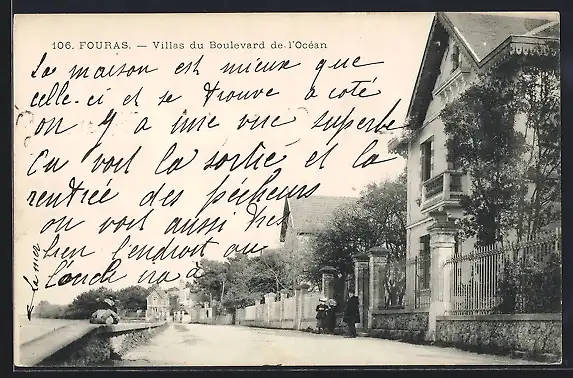 106. FOURAS. — Villas du Boulevard de l'Océan
La maison est mieux que
celle-ci et se trouve à coté
on y a une vue superbe
On voit la sortie et la
rentrée des pécheurs
on voit aussi très
bien l'endroit où
l'oncle ira à
la mer